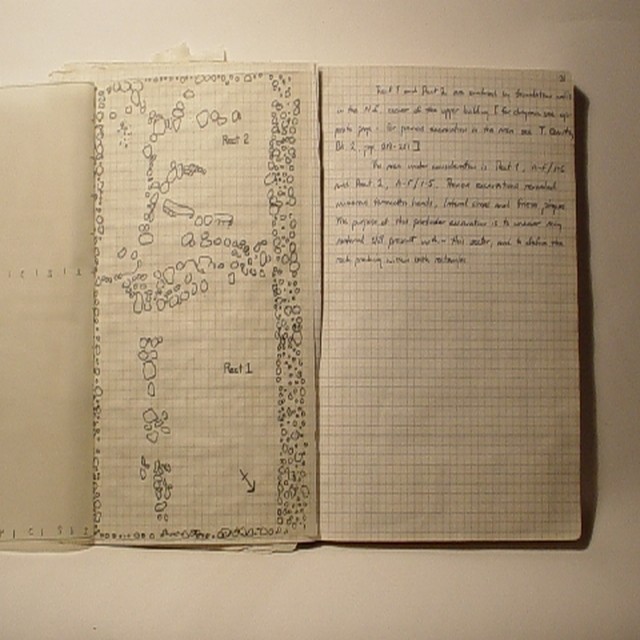 Rect 2
Rect 1
Rect 1 and Rect 2 are enclosed by foundation walls
in the N.E. corner of the upper building [ for diagram see opo-
site page. for previous excavation in the area see T.
Bk 2, pp.
The area under consideration is Rect 1, A-F/1-6
and Rect 2, A-F/1-5. Previous excavations revealed
numerous terracotta heads, lateral simas and frieze plaques
The purpose of this particular excavation is to uncover any
material still present within this sector, and to define the
rock packing within both rectangles